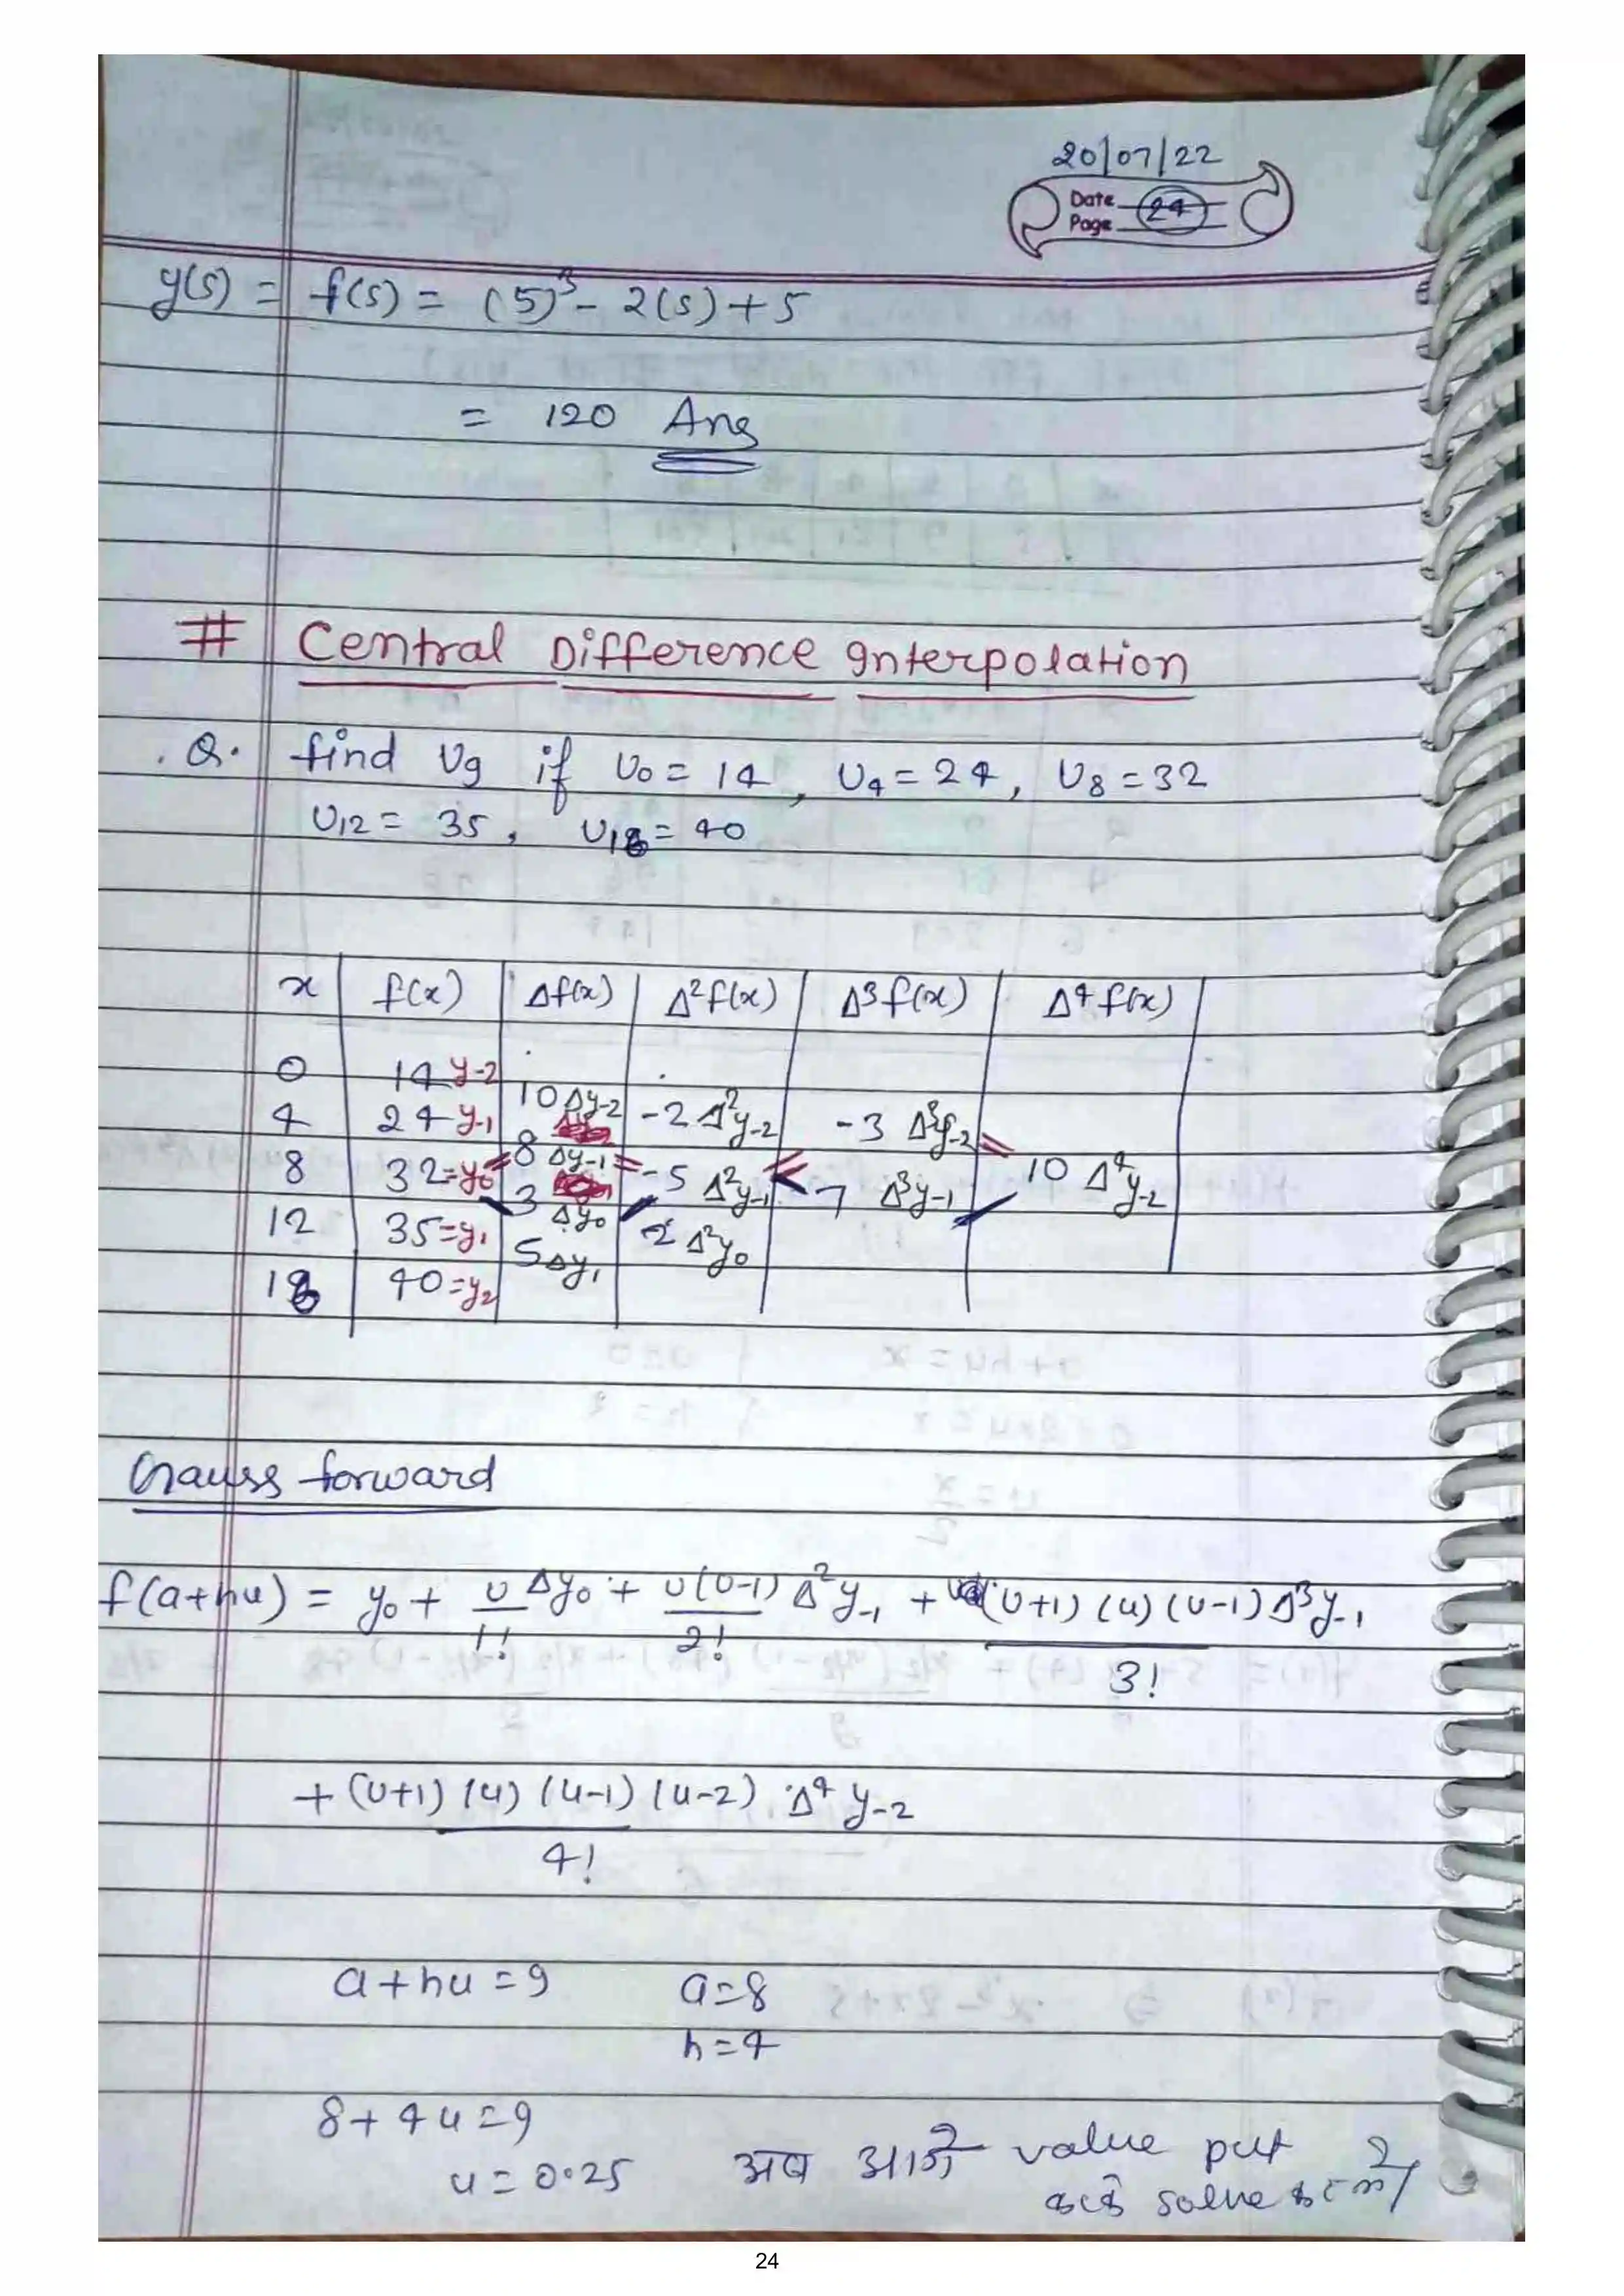 20/07/22
Date
Page 24
y(5) = f(5) = (5)³ - 2(5) + 5
= 120 Ans
# Central Difference Interpolation
Q. find U9 if U0 = 14, U4 = 24, U8 = 32
U12 = 35, U16 = 40
x f(x) Δf(x) Δ²f(x) Δ³f(x) Δ⁴f(x)
0 14 y-2
10 Δy-2
4 24 y-1 -2 Δ²y-2
-3 Δ³y-2
8 Δy-1
8 32 = y0 -5 Δ²y-1 10 Δ⁴y-2
3 Δy0 7 Δ³y-1
12 35 = y1 2 Δ²y0
5 Δy1
16 40 = y2
Gauss forward
f(a+hu) = y0 + u/1! Δy0 + u(u-1)/2! Δ²y-1 + (u+1)(u)(u-1)/3! Δ³y-1
+ (u+1)(u)(u-1)(u-2)/4! Δ⁴y-2
a + hu = 9 a = 8
h = 4
8 + 4u = 9
u = 0.25 अब आगे value put
solve
24